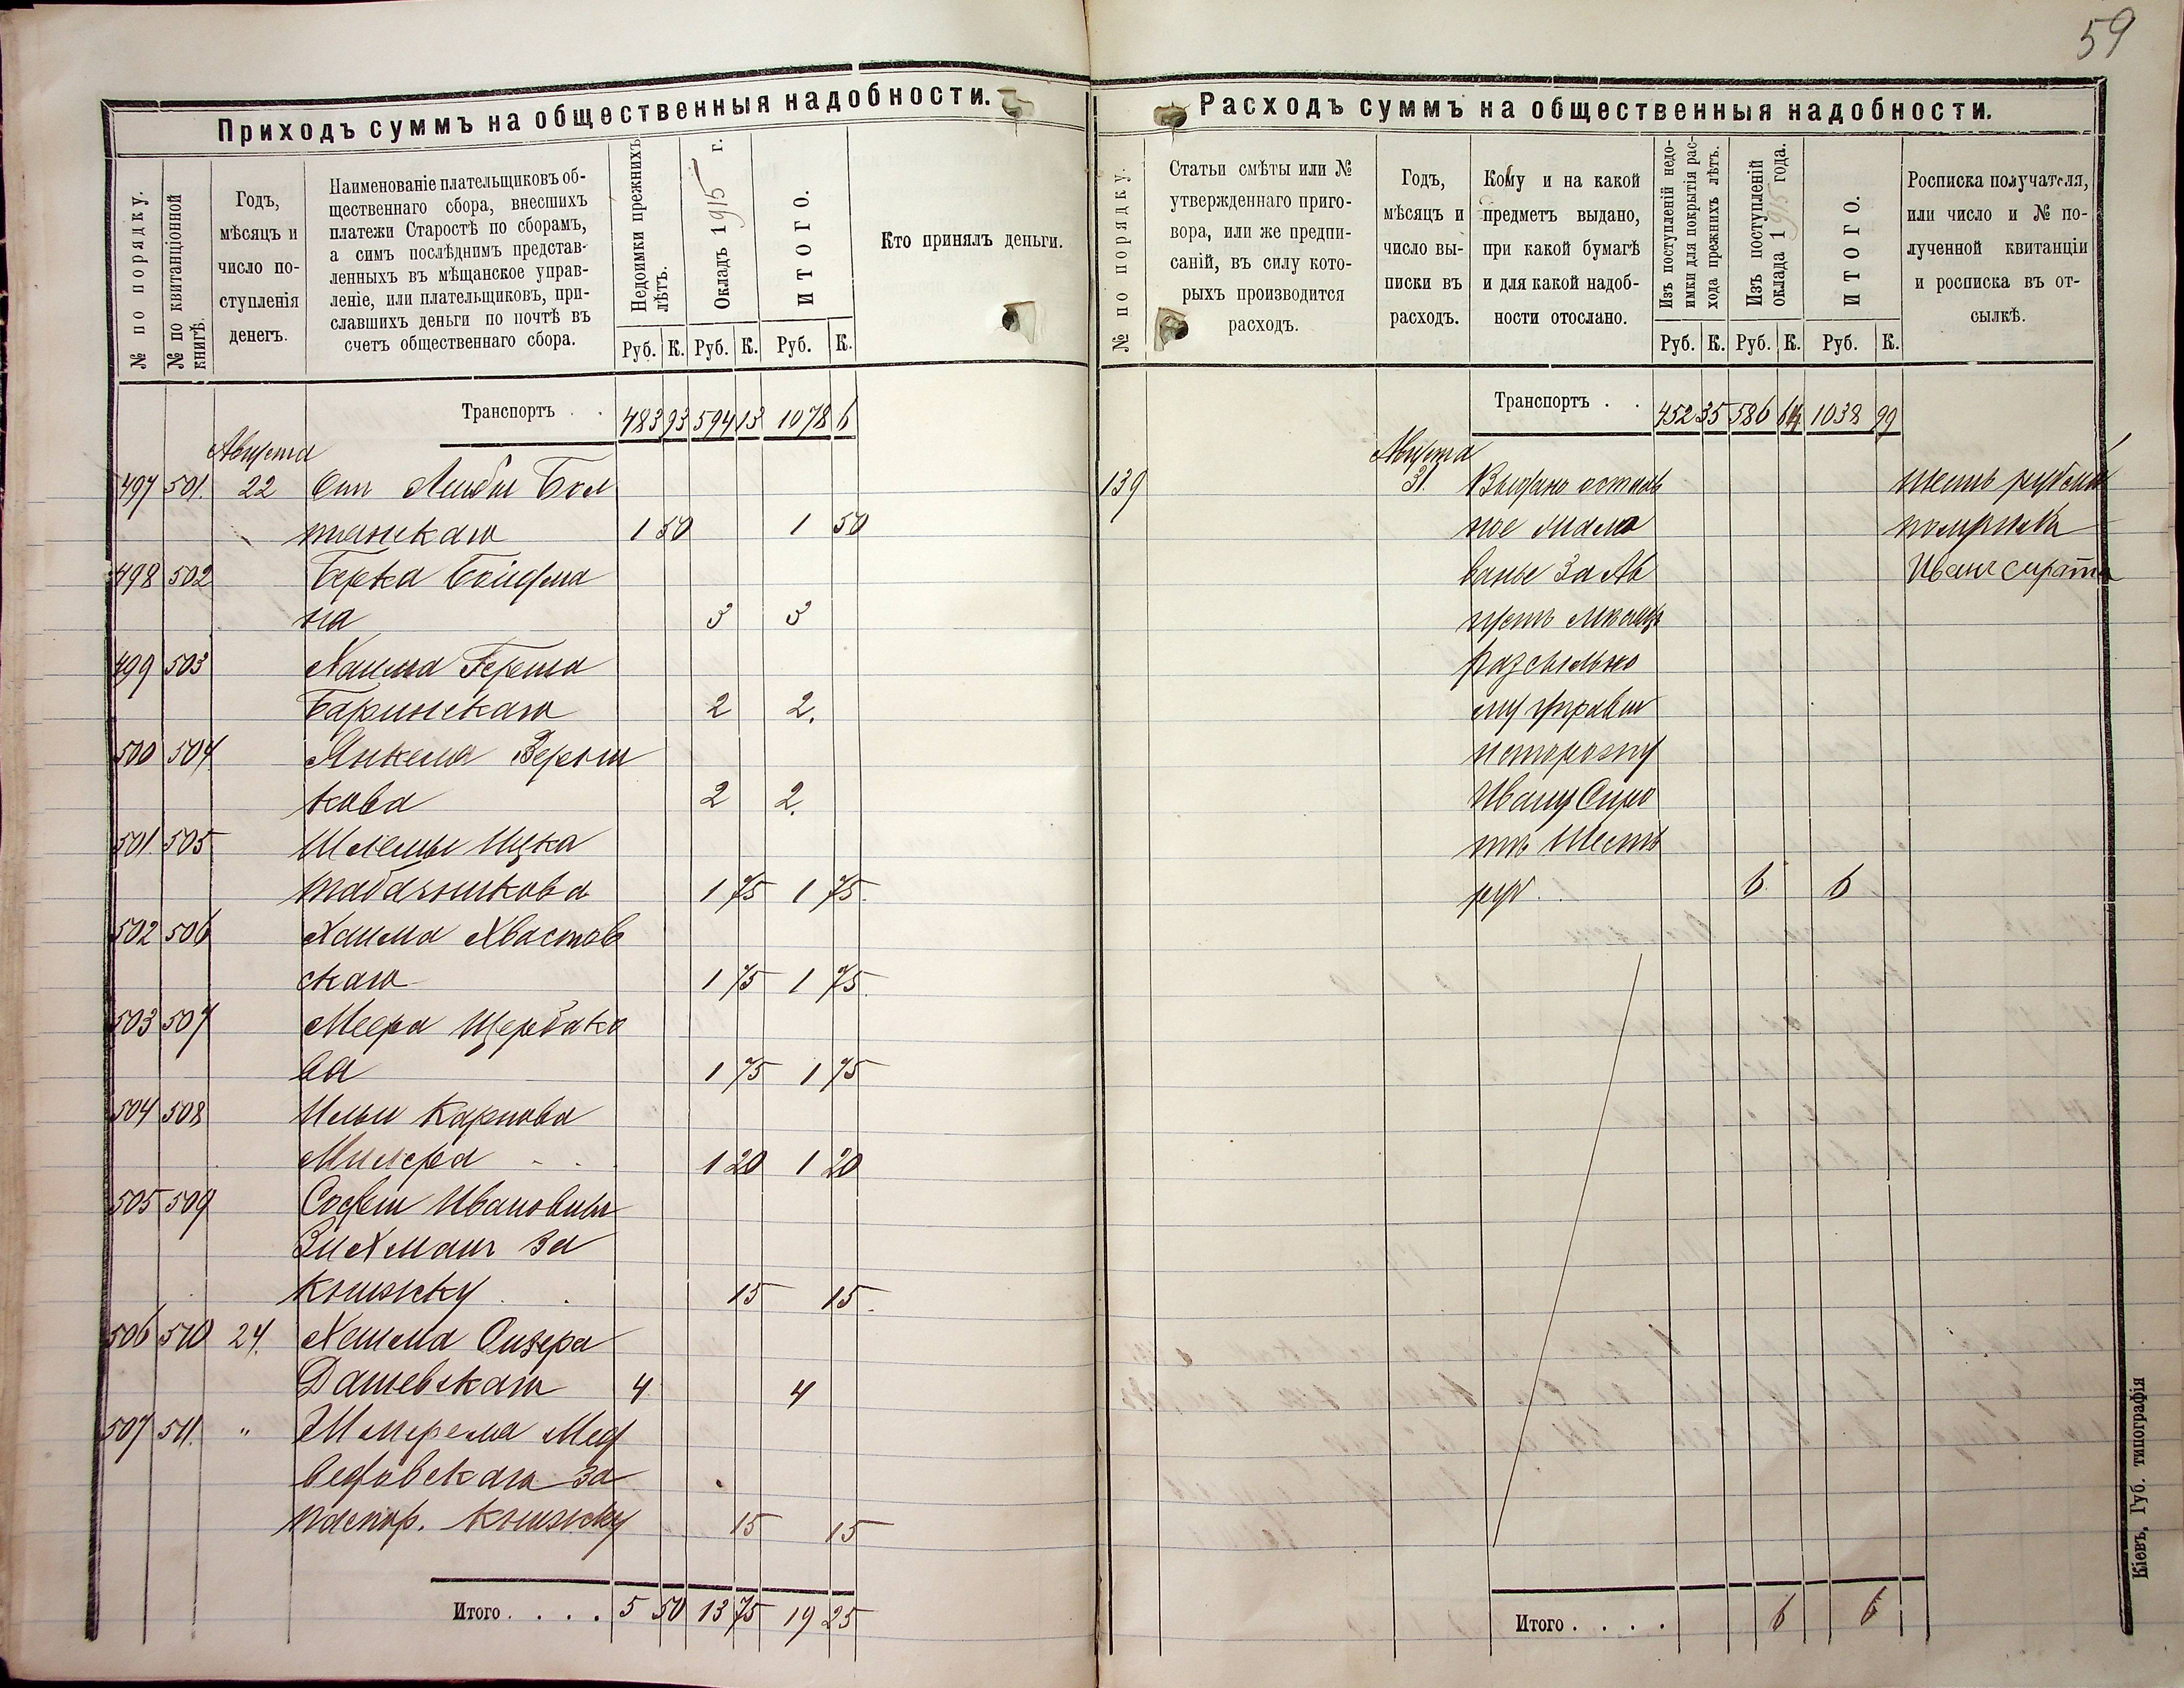 59
Приходъ суммъ на общественныя надобности.
№ по порядку.
№ по квитанціонной книгѣ.
Годъ,
мѣсяцъ и
число по-
ступленія
денегъ.
Наименованіе плательщиковъ об-
щественнаго сбора, внесшихъ
платежи Старостѣ по сборамъ,
а симъ послѣднимъ представ-
ленныхъ въ мѣщанское управ-
леніе, или плательщиковъ, при-
славшихъ деньги по почтѣ въ
счетъ общественнаго сбора.
Недоимки прежнихъ
лѣтъ.
Окладъ 1915 г.
ИТОГО.
Кто принялъ деньги.
Руб. К. Руб. К. Руб. К.
Транспортъ . . 483 93 594 13 1078 6
Августа
497 501. 22 Отъ Лейбы Бол
танскаго 1 50 1 50
498 502 Берка Бойдма
на 3 3
499 503 Хаима Герша
Баринскаго 2 2.
500 504 Янкеля Верни
кова 2 2.
501. 505 Шлемы Ицка
Табачникова 1 75 1 75.
502 506 Хаима Хвастов
скаго 1 75 1 75.
503 507 Меера Щербако
ва 1 75 1 75
504 508 Ильи Карпова
Милера . . 1 20 1 20
505 509 Софіи Ивановны
Зихманъ за
книжку . . 15 15.
506 510 24. Хаима Сизера
Дашевскаго 4 4
507 511. " Шмерела Мед
ведовскаго за
паспор. книжку 15 15
Итого . . . . 5 50 13 75 19 25
Расходъ суммъ на общественныя надобности.
№ по порядку.
Статьи смѣты или №
утвержденнаго приго-
вора, или же предпи-
саній, въ силу кото-
рыхъ производится
расходъ.
Годъ,
мѣсяцъ и
число вы-
писки въ
расходъ.
Кому и на какой
предметъ выдано,
при какой бумагѣ
и для какой надоб-
ности отослано.
Изъ поступленій недо-
имки для покрытія рас-
хода прежнихъ лѣтъ.
Изъ поступленій
оклада 1915 года.
ИТОГО.
Росписка получателя,
или число и № по-
лученной квитанціи
и росписка въ от-
сылкѣ.
Руб. К. Руб. К. Руб. К.
Транспортъ . . 452 35 586 64 1038 99
Августа
139 31. Выдано осталь
ное жало
ванье за Ав
густъ мѣсяцъ
разсыльно
му управы
и сторожу
Ивану Сиро
тѣ Шесть
руб . . 6. 6
шесть рублей
получилъ
Иванъ Сирота
Итого . . . . 6 6
Кіевъ, Губ. типографія